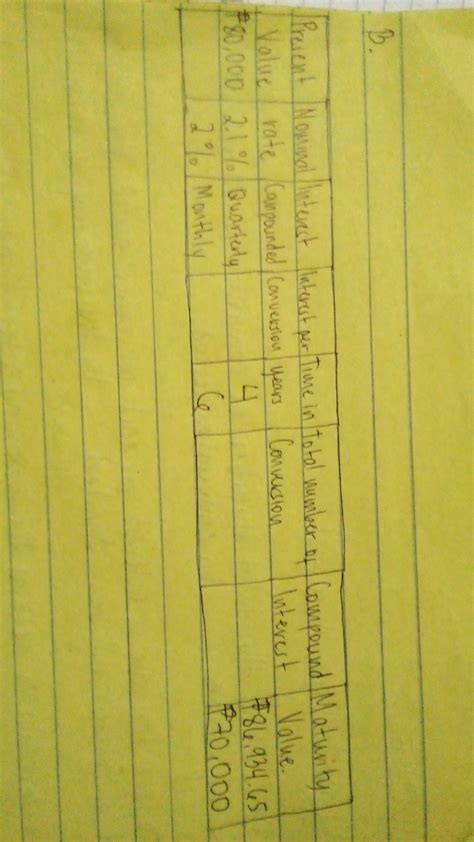 B.
Present Nominal Interest Interest per Time in Total number of Compound Maturity
Value rate Compounded Conversion years Conversion Interest Value
₱80,000 2.1% Quarterly 4 ₱86,934.65
2% Monthly 6 ₱70,000